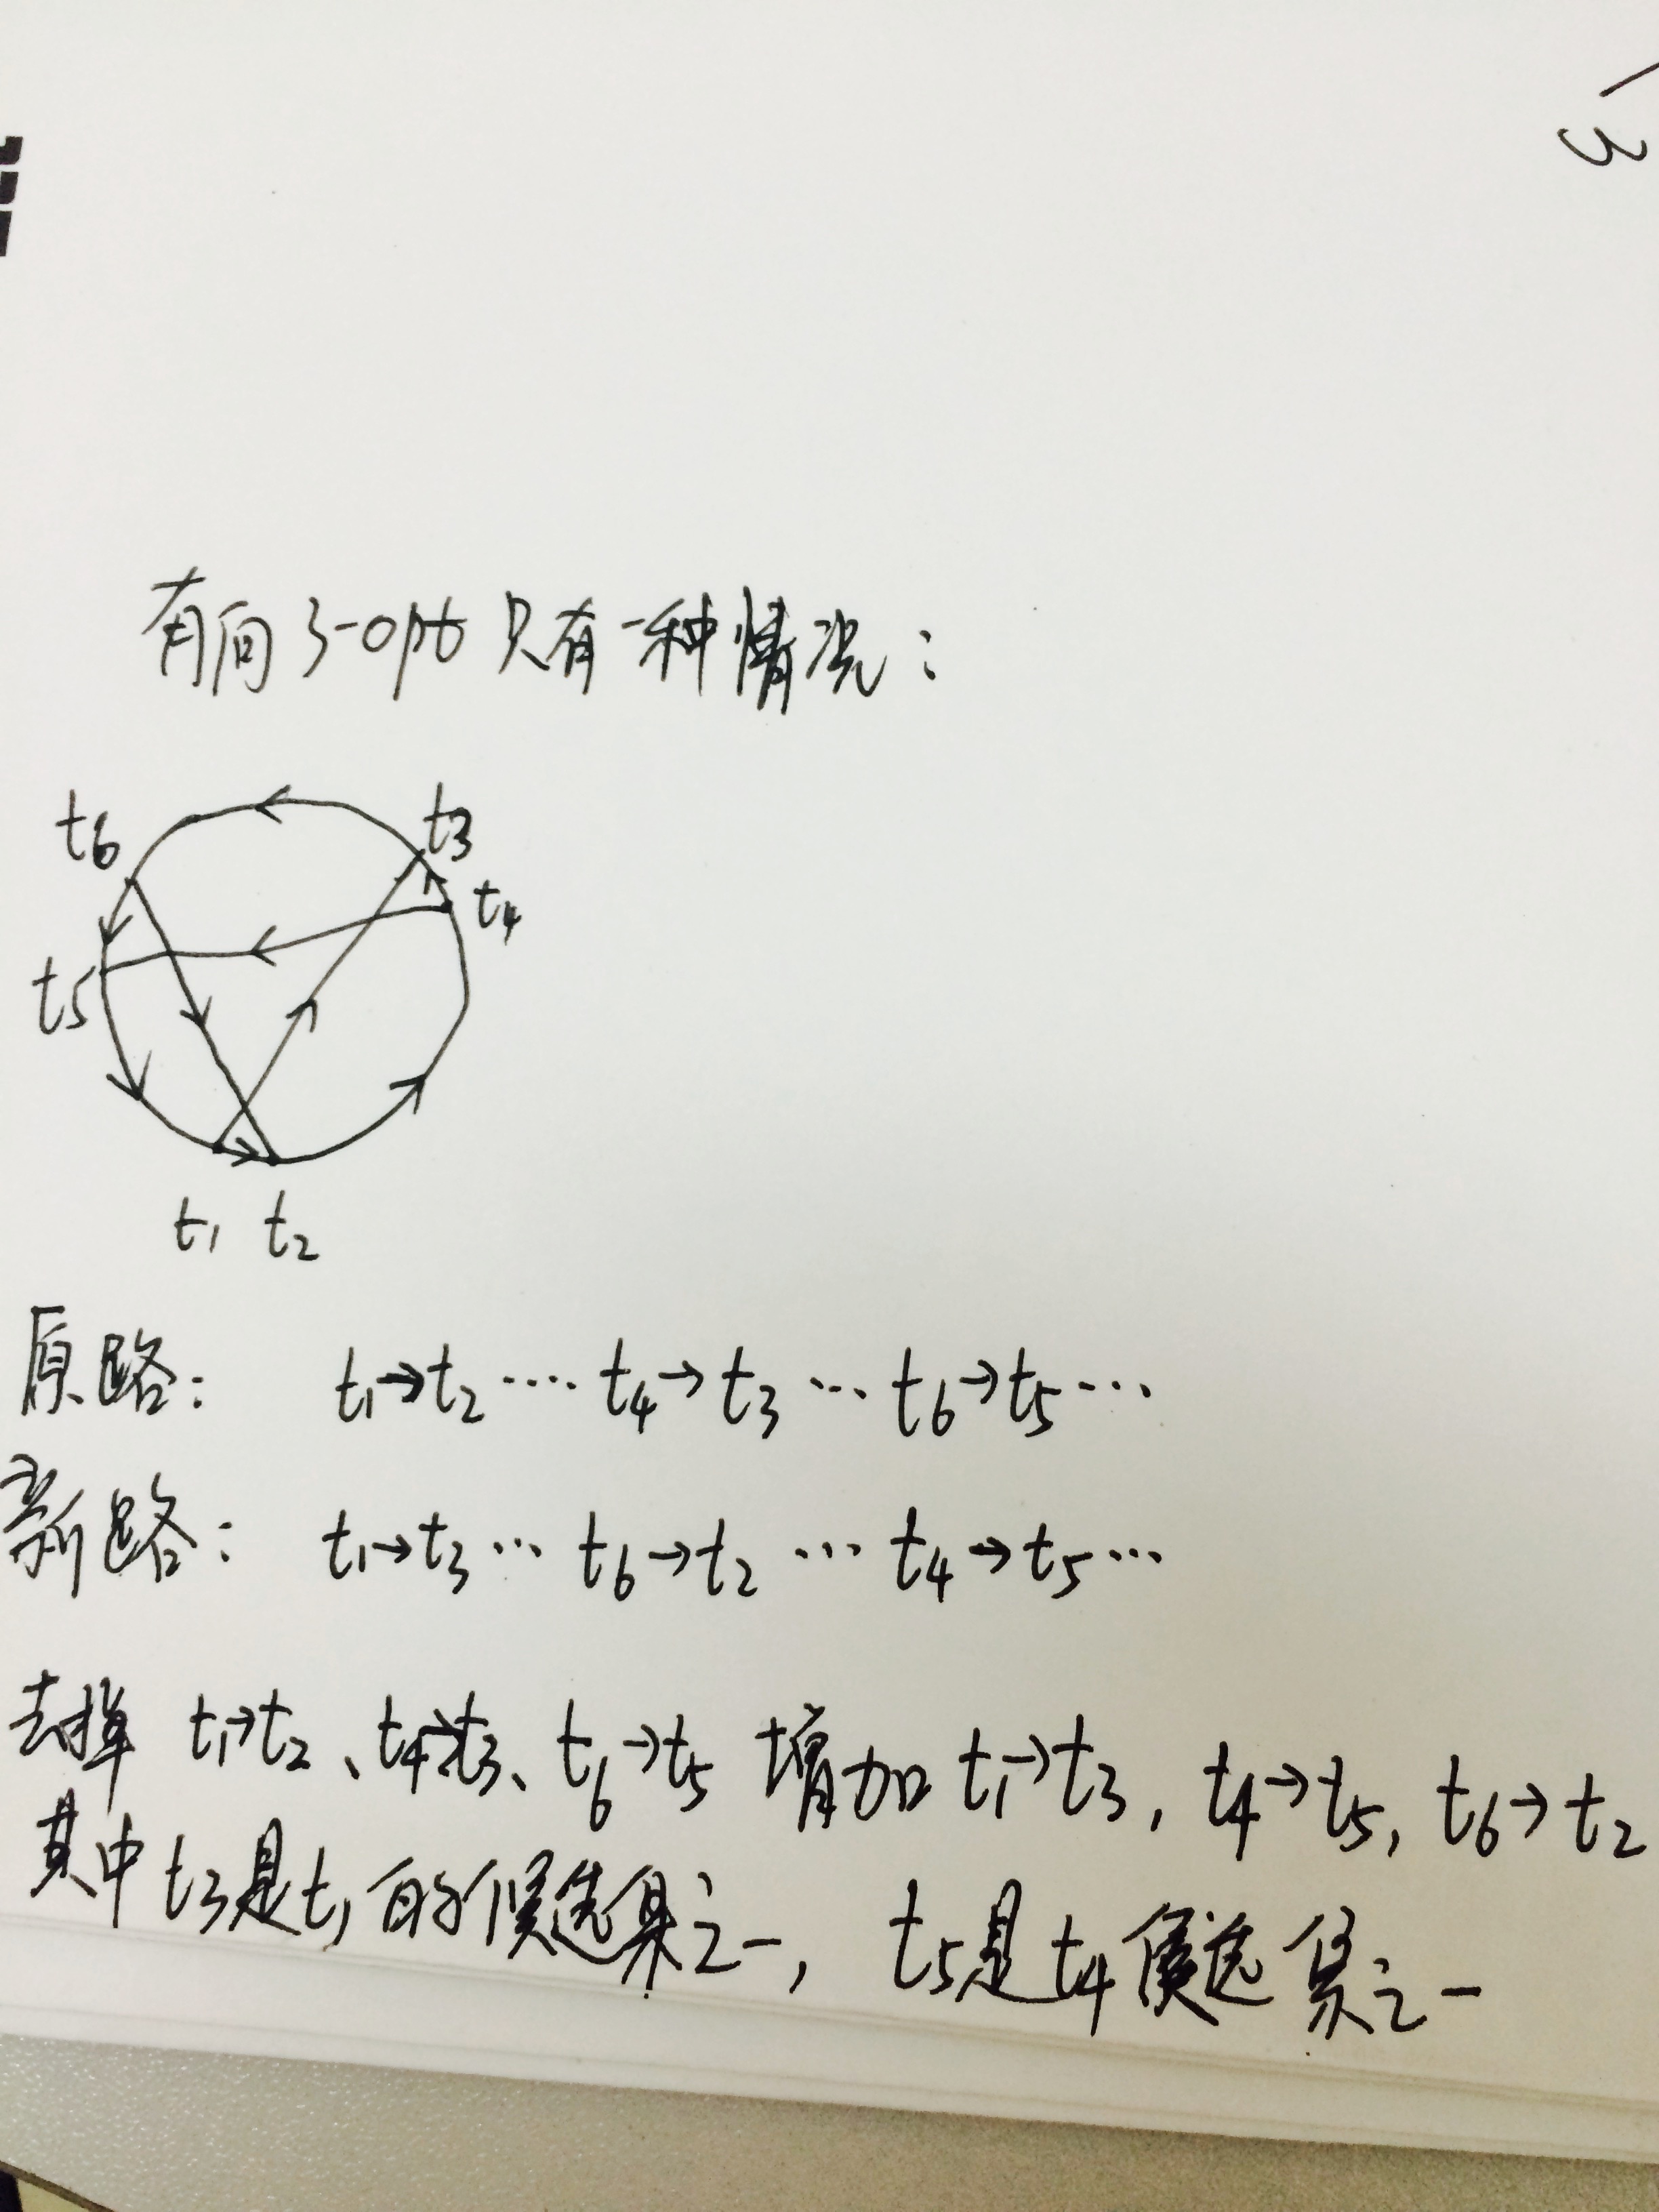 3
有向3-opt只有一种情况：
t6
t3
t4
t5
t1 t2
原路： t1→t2 ···· t4→t3 ··· t6→t5 ···
新路： t1→t3 ··· t6→t2 ··· t4→t5 ···
去掉 t1→t2、t4→t3、t6→t5 增加 t1→t3, t4→t5, t6→t2
其中t3是t1的候选集之一, t5是t4候选集之一